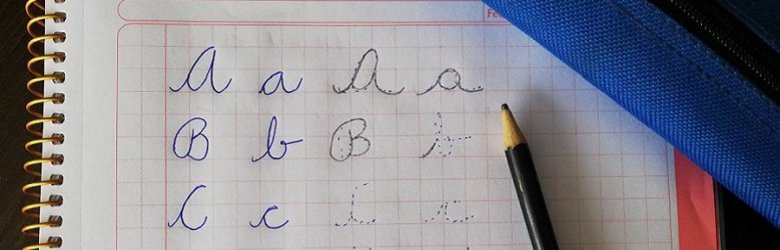 Fe
A a A a
B b B b
C c C c